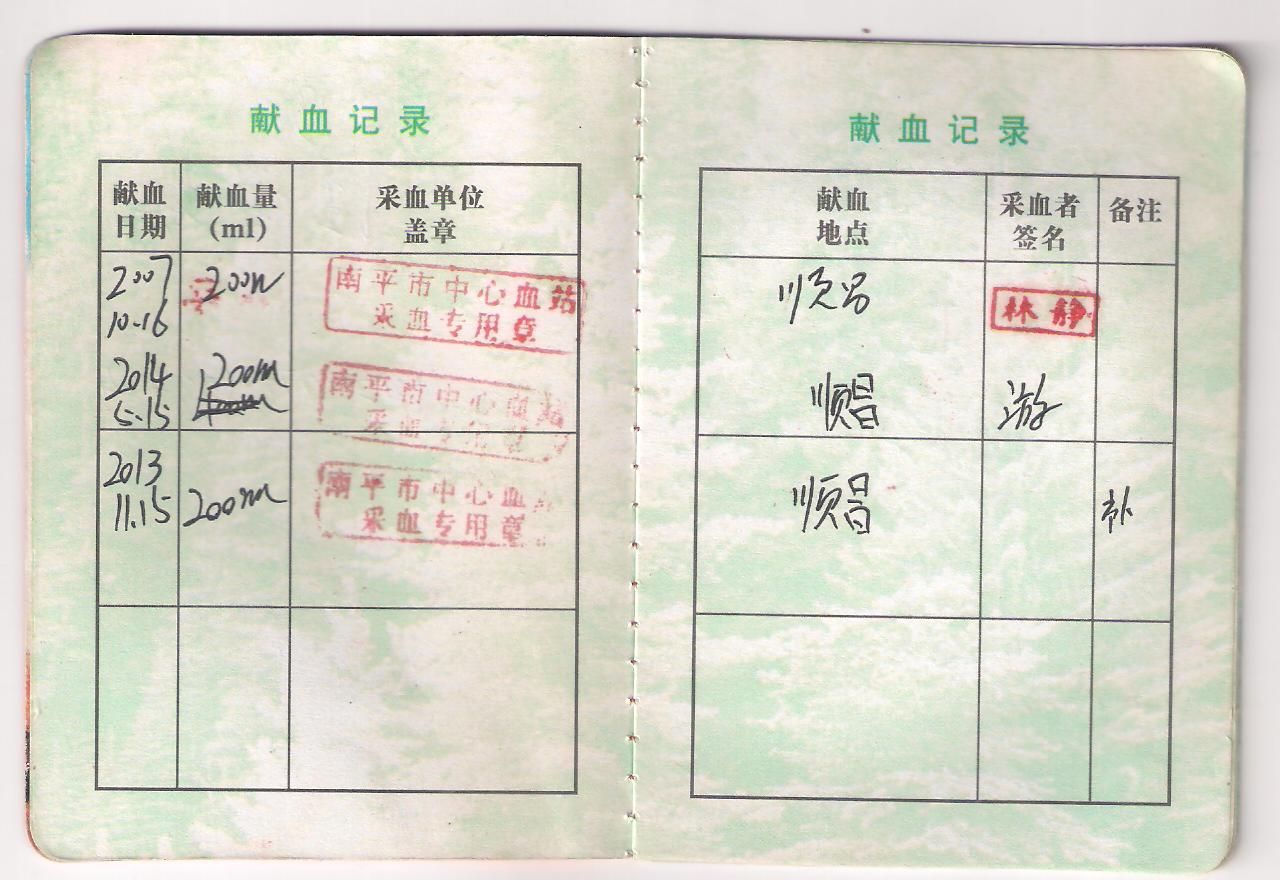 献血记录
献血日期
献血量(ml)
采血单位盖章
2007
10.16
200m
南平市中心血站
采血专用章
2014
5.15
200m
南平市中心血站
采血专用章
2013
11.15
200m
南平市中心血站
采血专用章
献血记录
献血地点
采血者签名
备注
顺昌
林静
顺昌
游
顺昌
补